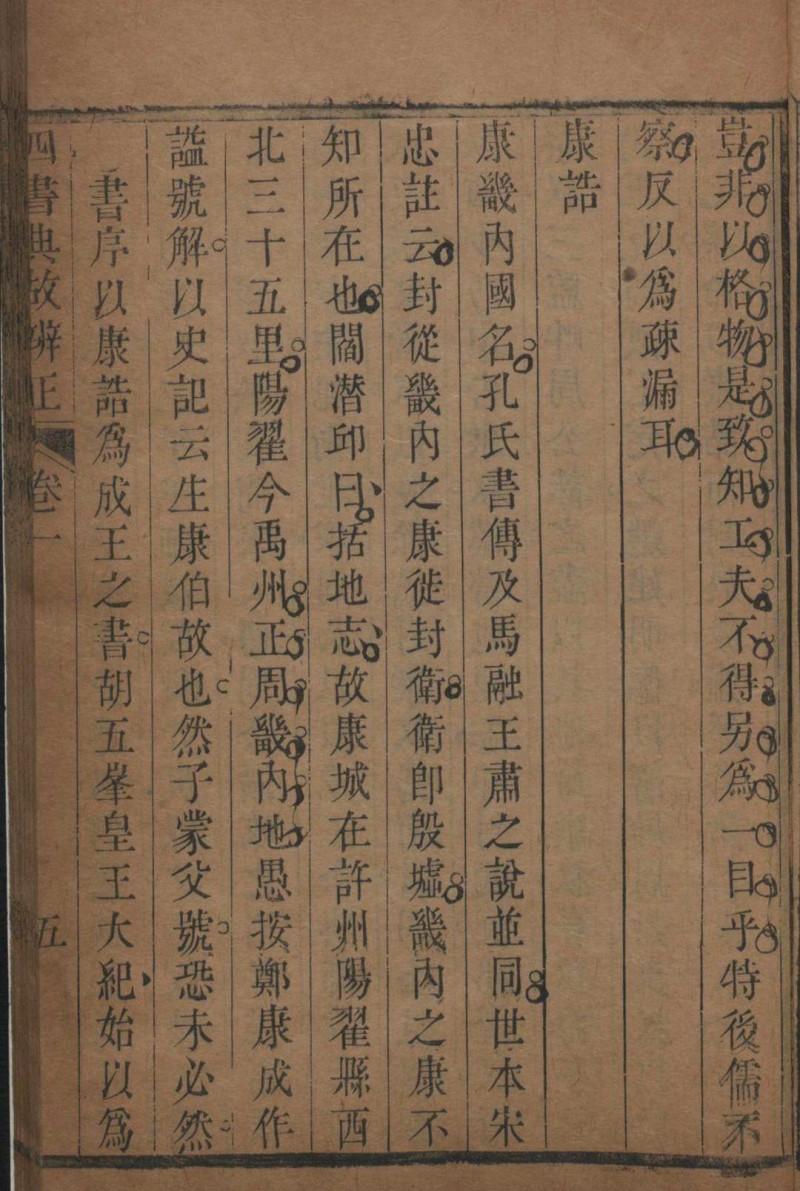 豈非以格物是致知工夫不得另爲一目乎特後儒不
察反以爲疎漏耳
康誥
康畿內國名孔氏書傳及馬融王肅之說並同世本宋
忠註云封從畿內之康徙封衛衛卽殷墟畿內之康不
知所在也閻潛邱曰括地志故康城在許州陽翟縣西
北三十五里陽翟今禹州正周畿內地愚按鄭康成作
謚號解以史記云生康伯故也然子蒙父號恐未必然
書序以康誥爲成王之書胡五峯皇王大紀始以爲
四書典故辨正 卷一 五